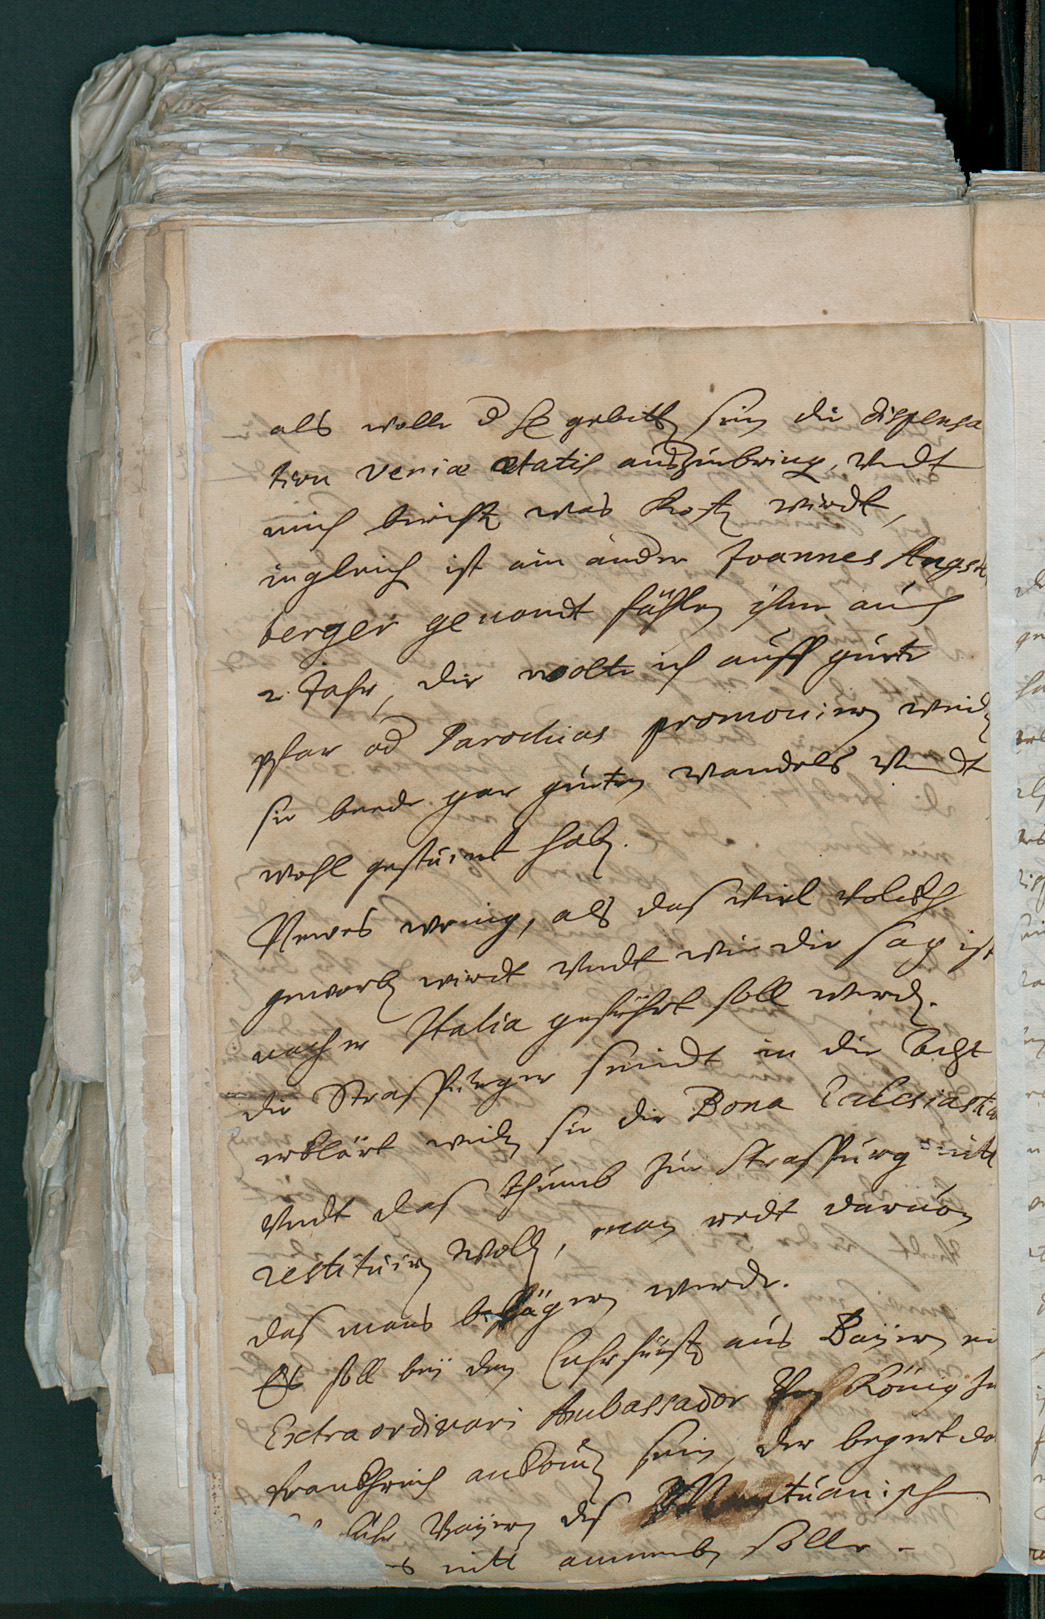 als wolle d H gebetten sein die dispensa
tion Veniæ ætatis auszubringen, Vndt
mich bericht was Kosten wirdt,
ingleich ist ein ander Joannes Angst
berger genandt fählen ihme auch
2. Jahr, die wolte ich auff gute
pfar od Parochias promouieren weiln
sie beede gar guten Wandels Vndt
wohl gestudirt haben.
Newes wenig, als das Viel Volckh
geworben wirdt Vndt wie die sag ist
nacher Italia geführt soll werden.
die Straspurger seindt in die Acht
erklärt weiln sie die Bona Eclesiastica
Vndt das Thumb zue Straspurg nitt
restituiren Wollen, man redt daruon
das mans belägern werde.
Es soll bey dem Churfürsten aus Bayern ein
Extraordinari Ambassador Von König in
Franckhreich ankomen sein, der begert das
Chur Bayern des Mantuanisch
nitt annemben solle.